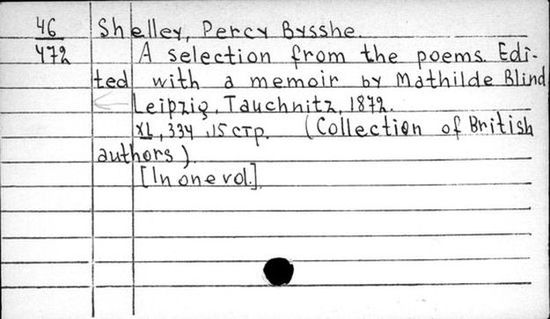 46 Shelley, Percy Bysshe.
472 A selection from the poems. Edi-
ted with a memoir by Mathilde Blind
Leipzig, Tauchnitz, 1872.
XL, 334, 15 стр. (Collection of British
authors).
[In one vol.]